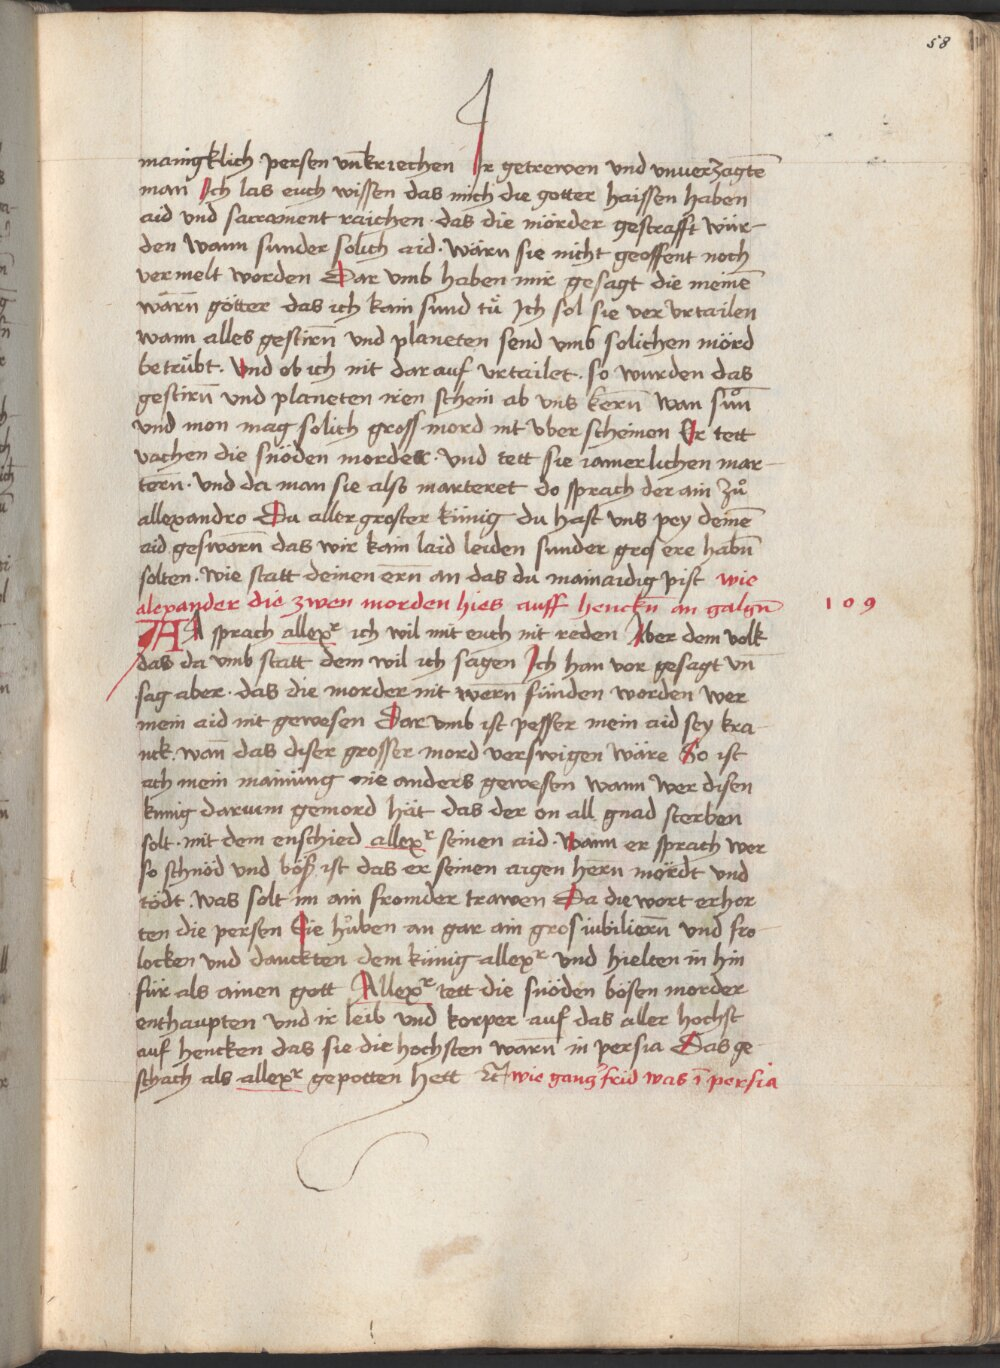 58
manigklich persen vnkriechen Ir getrewen vnd vnuerzagtē
man Ich las euch wissen das mich die gotter haissen haben
aid vnd sacrament raichen · das die mörder gestrafft wür-
den wann sunder solich aid · wärn sie nicht geoffent noch
vermelt worden Dar vmb haben mir gesagt die meinē
warn̄ götter das ich kain sund tů Ich sol sie ver vrtailen
wann alles gestirn̄ vnd planeten send vmb solichen mörd
betrübt · Vnd ob ich nit darauf vrtailet · so wurden das
gestirn̄ vnd planeten iren schein ab vns kern̄ wan sůn̄
vnd mon mag solich gross mord nit vber scheinen Er tett
vachen die snöden morder · vnd tett sie iamerlichen mar-
tern̄ · vnd da man sie also marteret do sprach der ain zů
allexandro Du aller groster künig du hast vns pey deinē
aid gesworn̄ das wir kain laid leiden sunder gros ere habn̄
solten · wie statt deinen ern̄ an das du mainaidig pist wie
alexander die zwen morden hies auff henckn̄ an galgn̄ 109
DA sprach allexr ich wil mit euch nit reden Aber dem volk
das da vmb statt dem wil ich sagen Ich han vor gesagt vn̄
sag aber · das die morder nit wern̄ fünden worden wer
mein aid nit gewesen Dar vmb ist pesser mein aid sey kra-
nck · wan̄ das diser grosser mord verswigen wäre So ist
ach mein mainüng nie anders gewesen wann wer disen
künig darum gemord hät das der on all gnad sterben
solt · mit dem enschied allexr seinen aid · wann er sprach wer
so schnöd vnd böß ist das er seinen aigen hern̄ mördt vnd
tödt · was solt im ain fromder trawen Da die wort erhor
ten die persen Sie hůben an gar ain gros iubiliern̄ vnd fro
locken vnd danckten dem künig allexr vnd hielten in hin
für als ainen gott Allexr tett die snöden bösen morder
enthaupten vnd ir leib vnd korper auf das aller hochst
auf hencken das sie die hochsten warn̄ in persia Das ge
schach als allexr gepotten hett wie ganz frid was ī persia